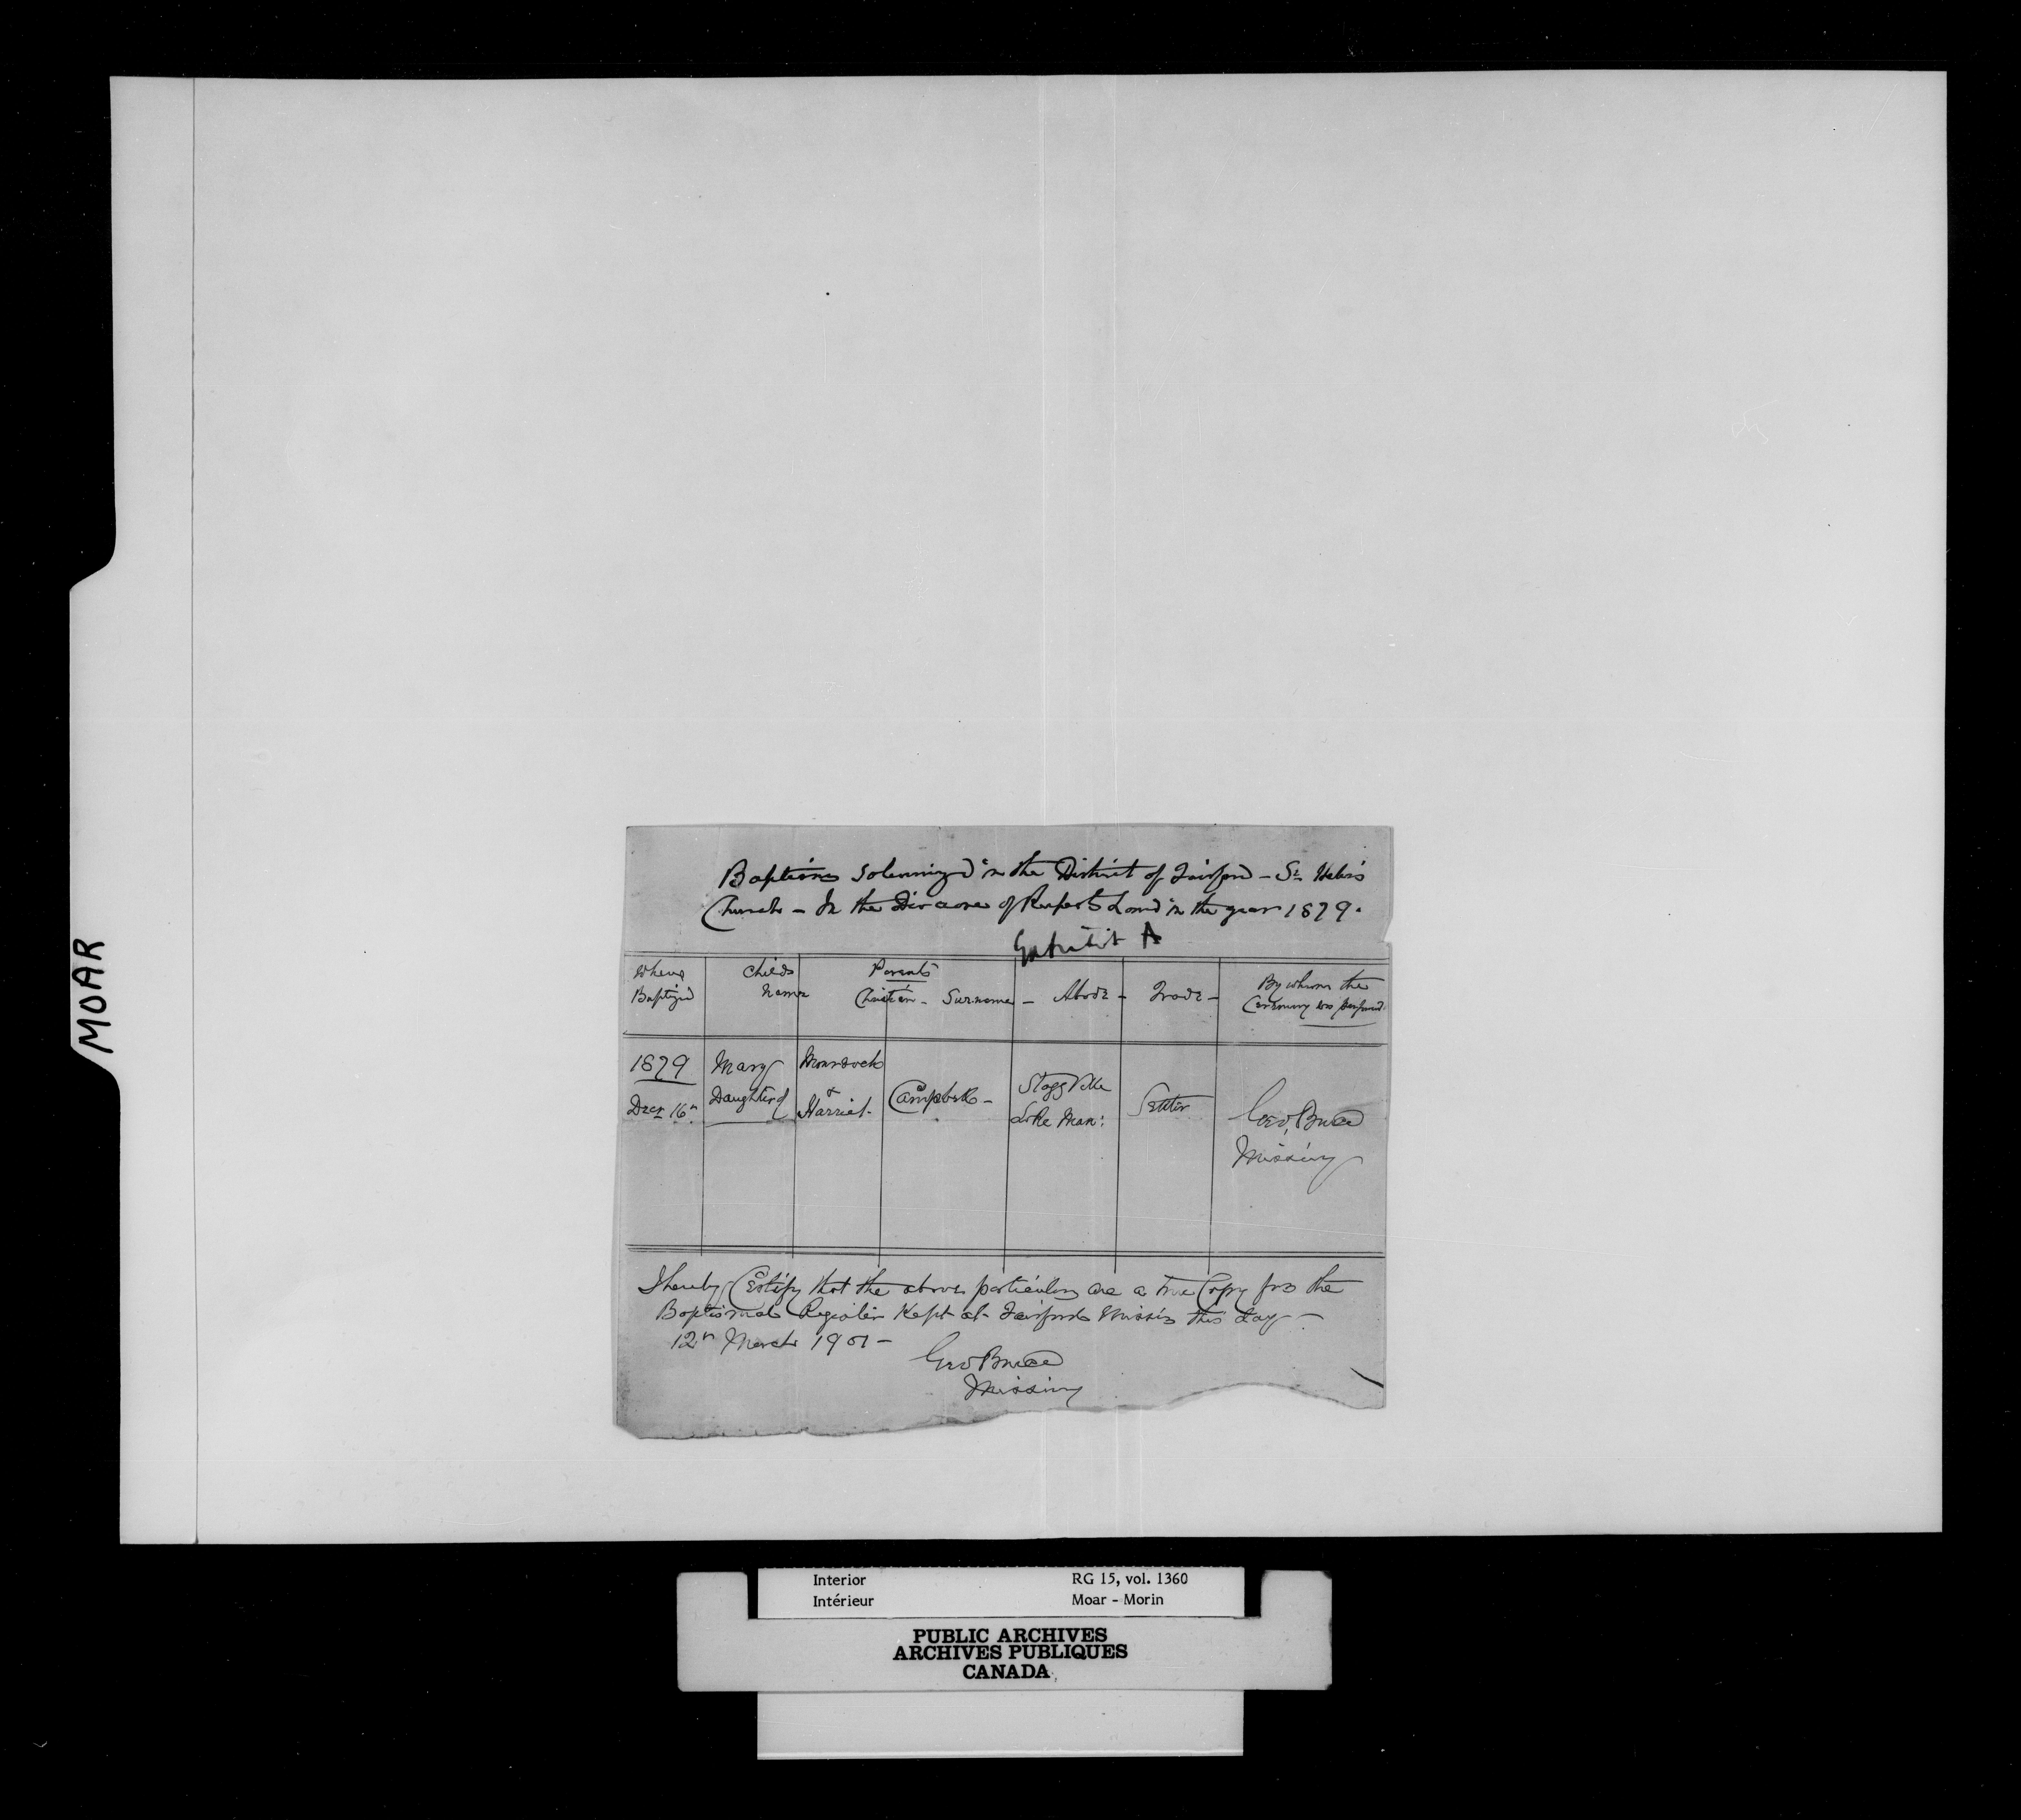 MOAR
Baptisms Solemnized in the District of Fairford - St. Helens
Church - In the Diocese of Ruperts Land in the year 1879.
Exhibit A
When Baptized
Childs Name
Parents
Christian - Surname - Abode - Trade -
By whom the Ceremony was performed.
1879
Decr 16th
Mary
Daughter of
Murdoch
&
Harriet.
Campbell -
Lake Man:
Settler
Geo, Bruce
Missiny
I hereby Certify that the above particulars are a true Copy from the
Baptismal Register Kept at Fairford Mission this day -
12th March 1901 -
Geo Bruce
Missiny
Interior RG 15, vol. 1360
Intérieur Moar - Morin
PUBLIC ARCHIVES
ARCHIVES PUBLIQUES
CANADA